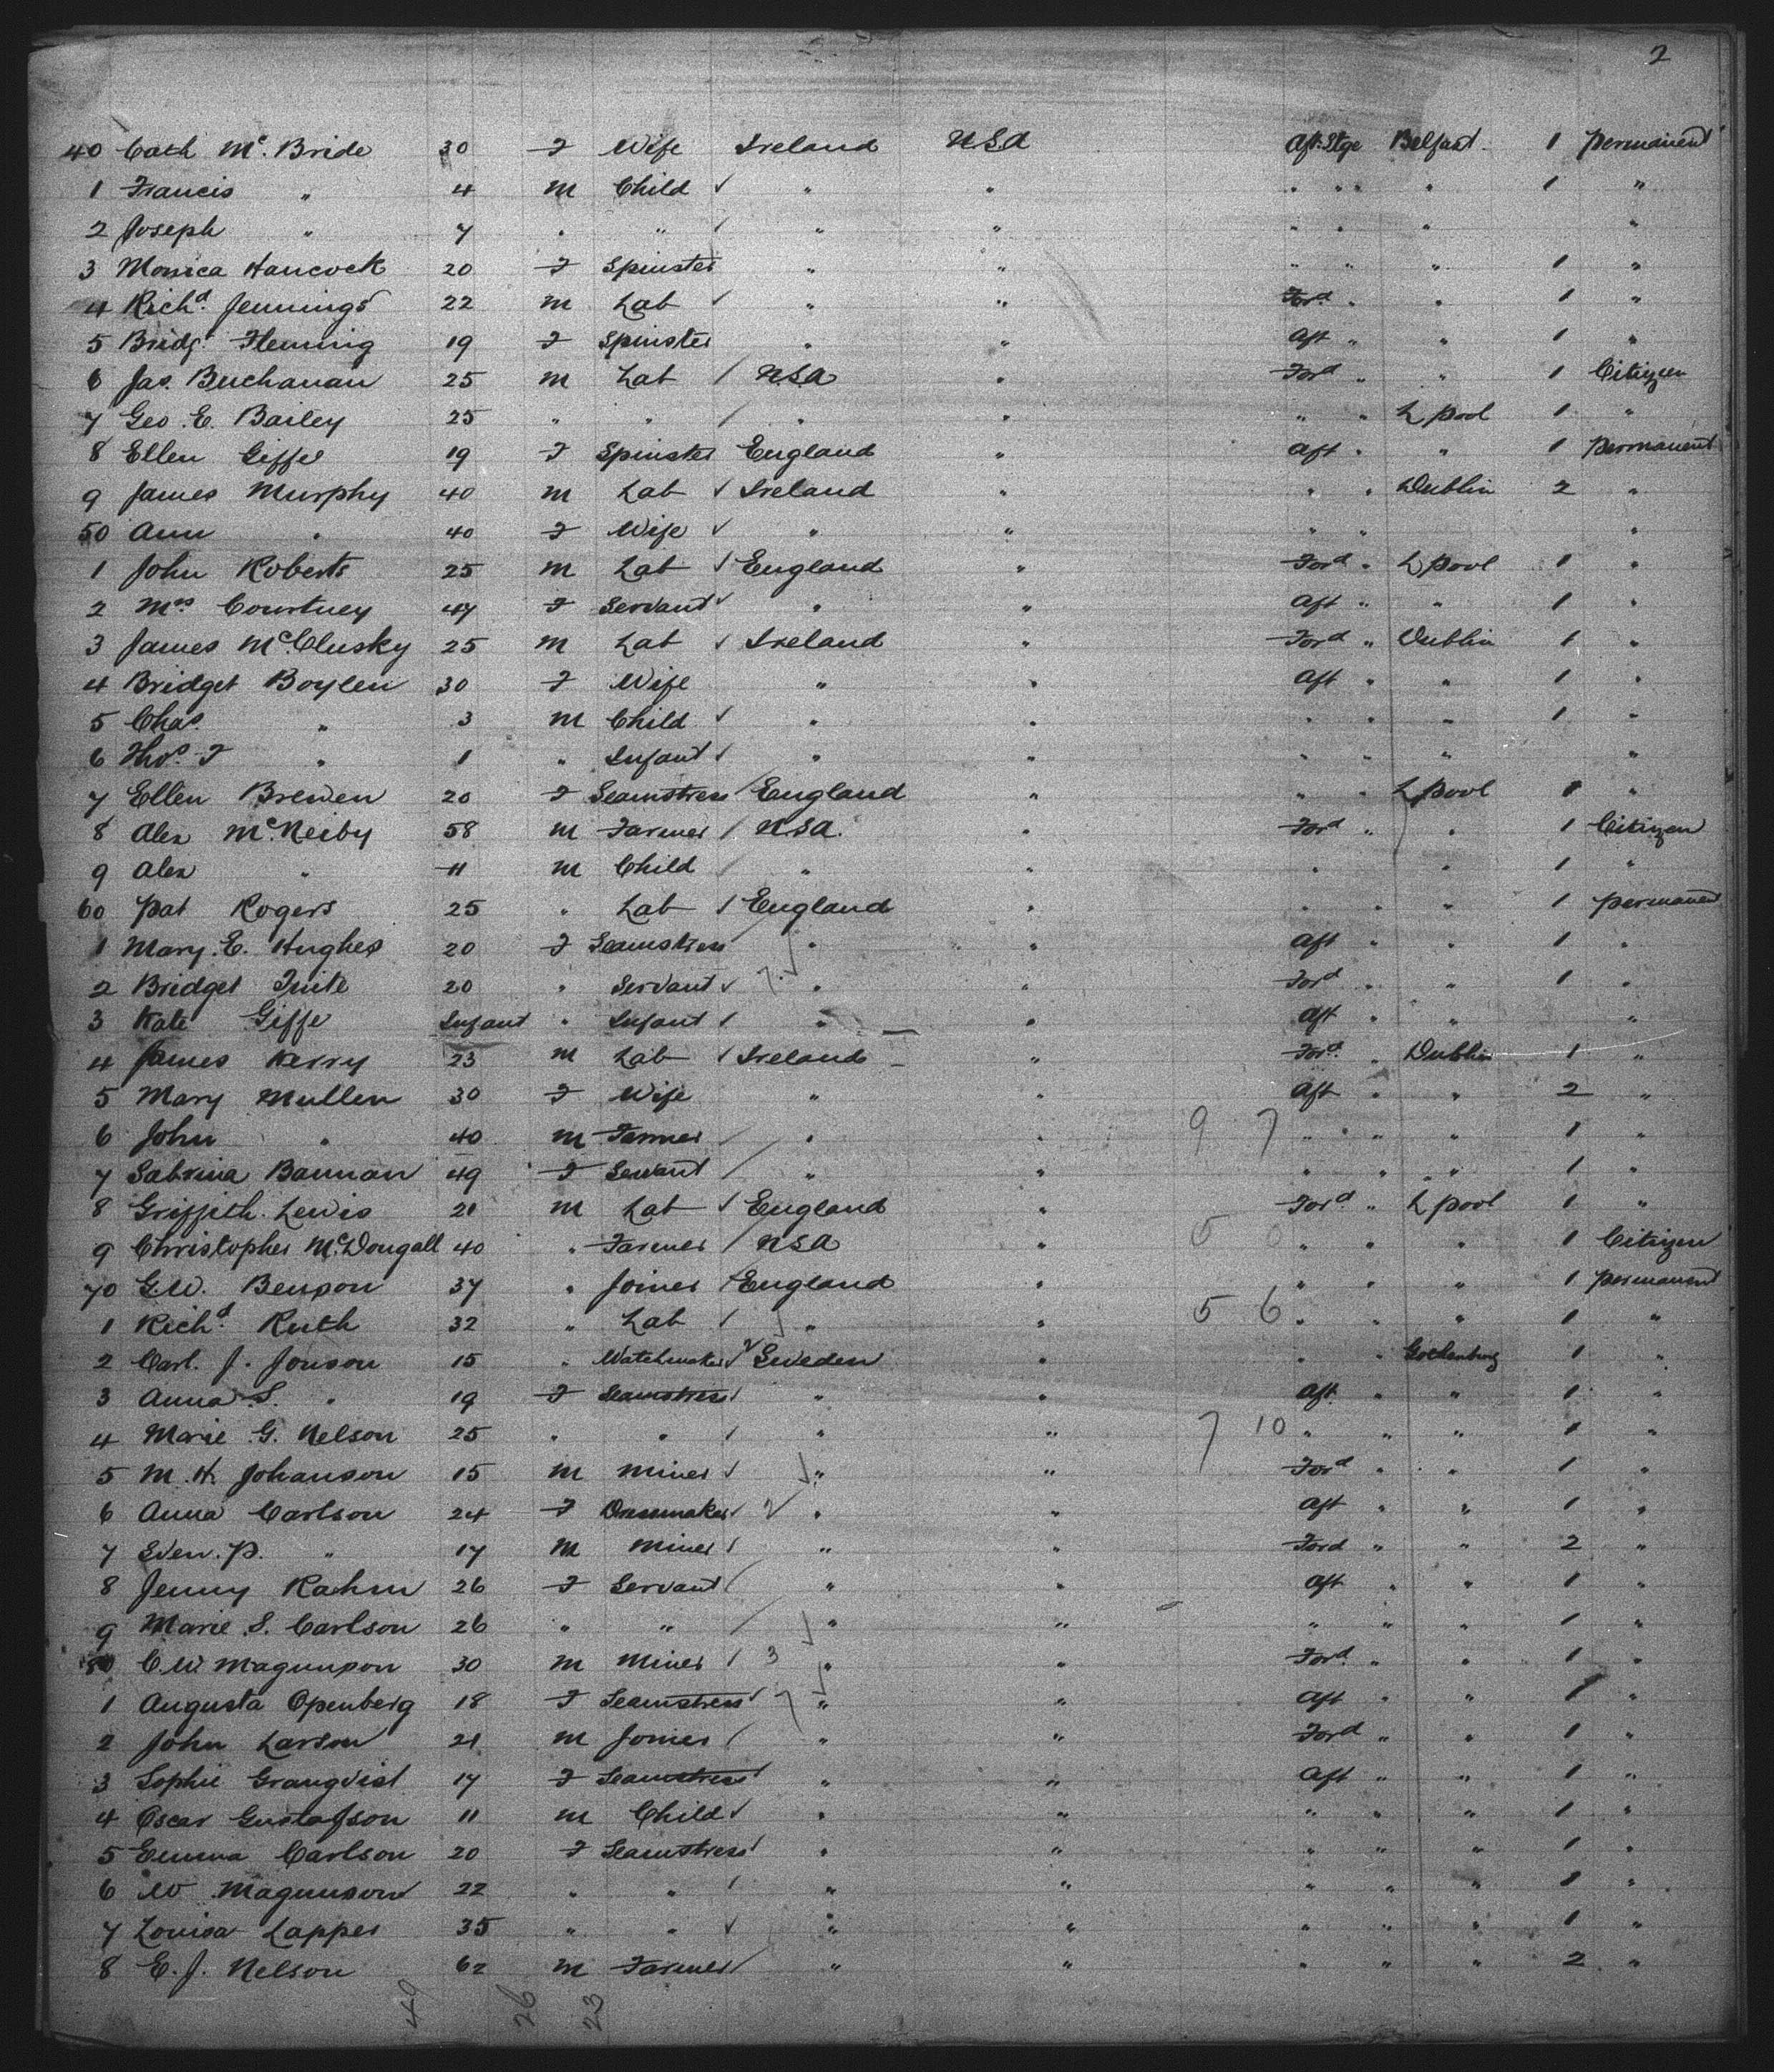 2
40 Cath Mc. Bride 30 F Wife Ireland USA Aft. Stge Belfast 1 permanent
1 Francis " 4 m Child " " " " " 1 "
2 Joseph " 7 " " " " " " " "
3 Monica Hancock 20 F Spinster " " " " " 1 "
4 Richd. Jennings 22 m Lab " " Ford " " 1 "
5 Bridgt. Fleming 19 F Spinster " " Aft " " 1 "
6 Jas. Buchanan 25 m Lab USA " Ford " " 1 Citizen
7 Geo. E. Bailey 25 " " " " " " L pool 1 "
8 Ellen Giffe 19 F Spinster England " Aft " " 1 permanent
9 James Murphy 40 m Lab Ireland " " " Dublin 2 "
50 Ann " 40 F Wife " " " " "
1 John Roberts 25 m Lab England " Ford " L pool 1 "
2 Mrs Courtney 47 F Servant " " Aft " " 1 "
3 James McClusky 25 m Lab Ireland " Ford " Dublin 1 "
4 Bridget Boylen 30 F Wife " " Aft " " 1 "
5 Chas. " 3 m Child " " " " " 1 "
6 Thos. F " 1 " Infant " " " " " "
7 Ellen Brewen 20 F Seamstress England " " " L pool 1 "
8 Alex McNeiby 58 m Farmer USA. " Ford " " 1 Citizen
9 Alex " 11 m Child " " " " " 1 "
60 Pat Rogers 25 " Lab England " " " " 1 permanent
1 Mary. E. Hughes 20 F Seamstress " " Aft " " 1 "
2 Bridget Tuite 20 " Servant " " Ford " " 1 "
3 Kate Giffe Infant " Infant " " Aft " " "
4 James Kerry 23 m Lab Ireland " Ford. " Dublin 1 "
5 Mary Mullen 30 F Wife " " Aft " " 2 "
6 John " 40 m Farmer " " 9 7 " " " 1 "
7 Sabrina Bannan 49 F Servant " " " " " 1 "
8 Griffith Lewis 21 m Lab England " Ford " L pool 1 "
9 Christopher McDougall 40 " Farmer USA " 5 0 " " " 1 Citizen
70 G.W. Benson 37 " Joiner England " " " " 1 permanent
1 Richd. Ruth 32 " Lab " " 5 6 " " " 1 "
2 Carl. J. Jonson 15 " Watchmaker Sweden " " " Gothenburg 1 "
3 Anna S. " 19 F Seamstress " " Aft " " 1 "
4 Marie G. Nelson 25 " " " " 7 10 " " " 1 "
5 M. H. Johanson 15 m Miner " " Ford " " 1 "
6 Anna Carlson 24 F Dressmaker 2 " " Aft " " 1 "
7 Sven. P. " 17 m Miner " " Ford " " 2 "
8 Jenny Rahm 26 F Servant " " Aft " " 1 "
9 Marie S. Carlson 26 " " " " " " " 1 "
80 C.W Magunson 30 m Miner 3 " " Ford. " " 1 "
1 Augusta Openberg 18 F Seamstress 7 " " Aft " " 1 "
2 John Larson 21 m Joiner " " Ford " " 1 "
3 Sophie Granqvist 17 F Seamstress " " Aft " " 1 "
4 Oscar Gustafson 11 m Child " " " " " 1 "
5 Emma Carlson 20 F Seamstress " " " " " 1 "
6 W Magunson 22 " " " " " " " 1 "
7 Louisa Lapper 35 " " " " " " " 1 "
8 E. J. Nelson 62 m Farmer " " " " " 2 "
49 26 23